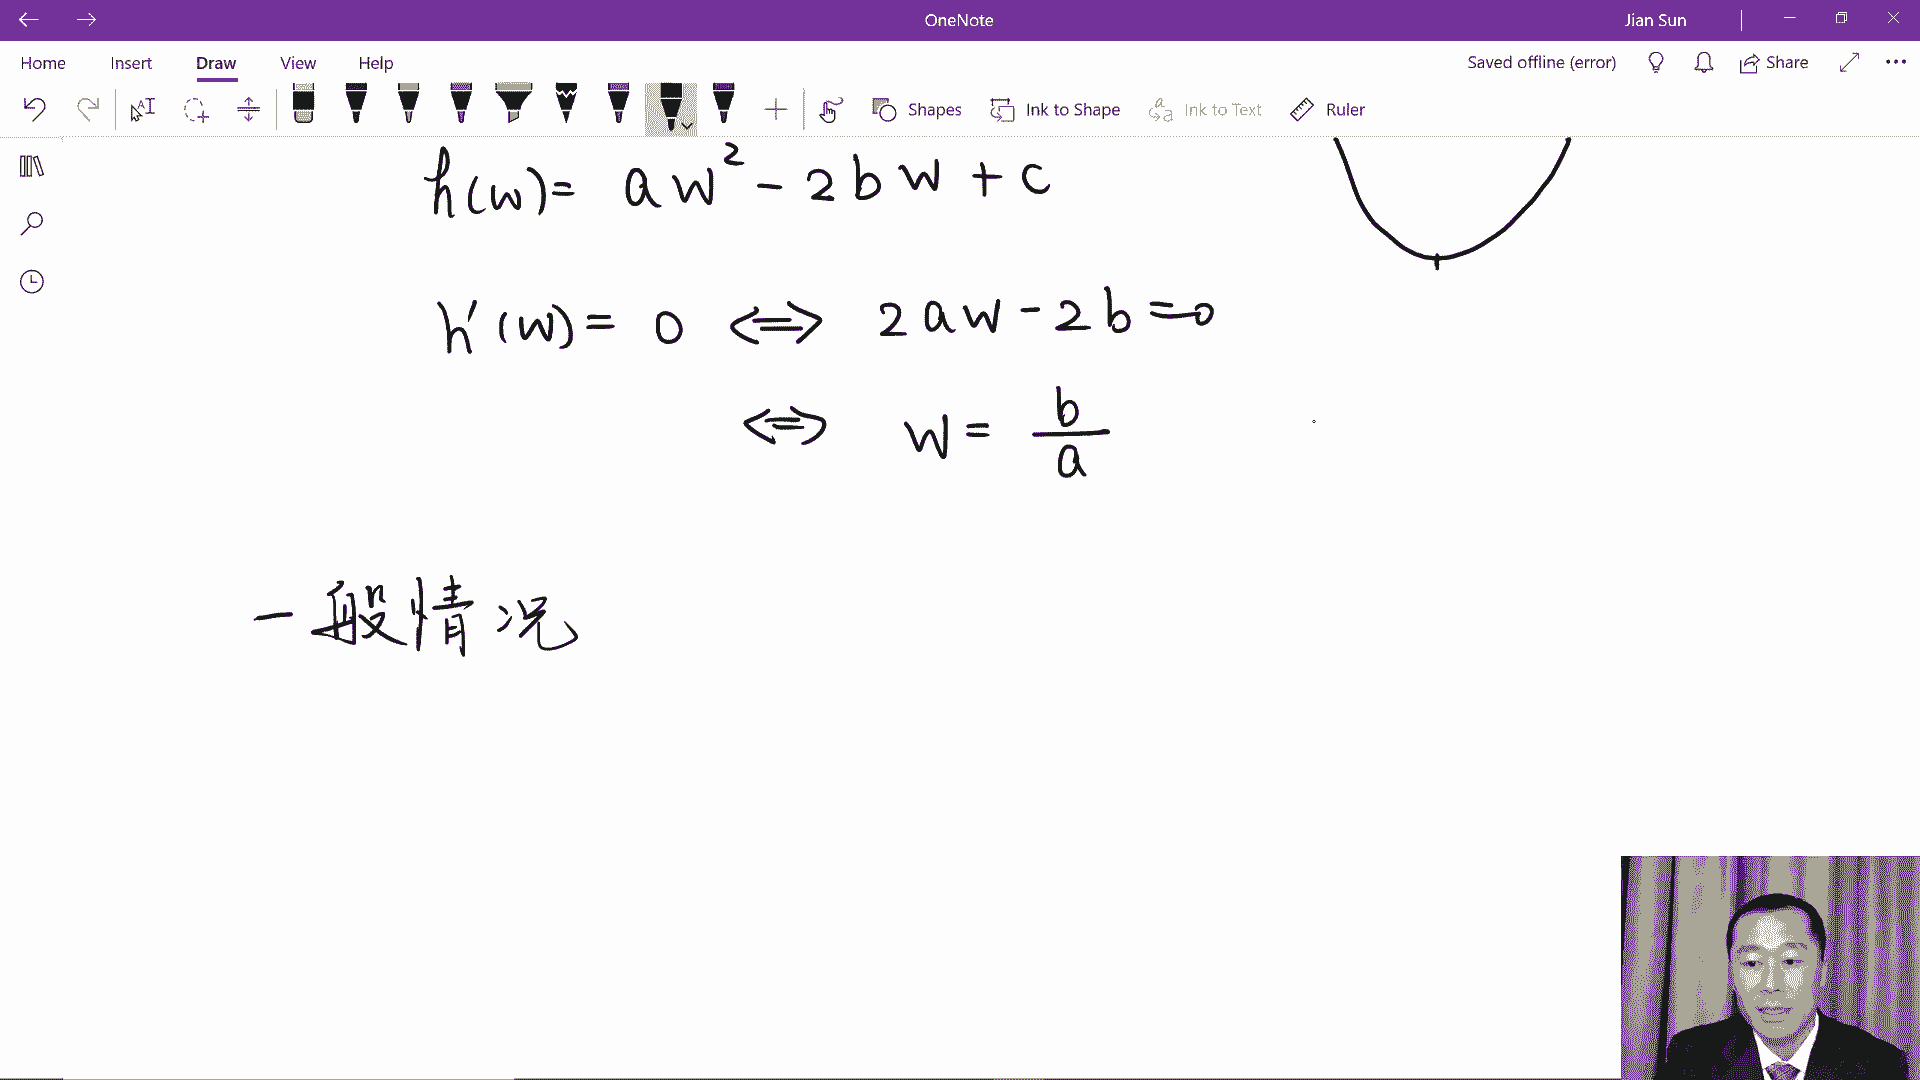 OneNote
Jian Sun
Home Insert Draw View Help
Saved offline (error)
Share
Shapes
Ink to Shape
Ink to Text
Ruler
h(w)= aw² - 2bw + c
h'(w)= 0 ⟺ 2aw - 2b = 0
⟺ w = b/a
一般情况